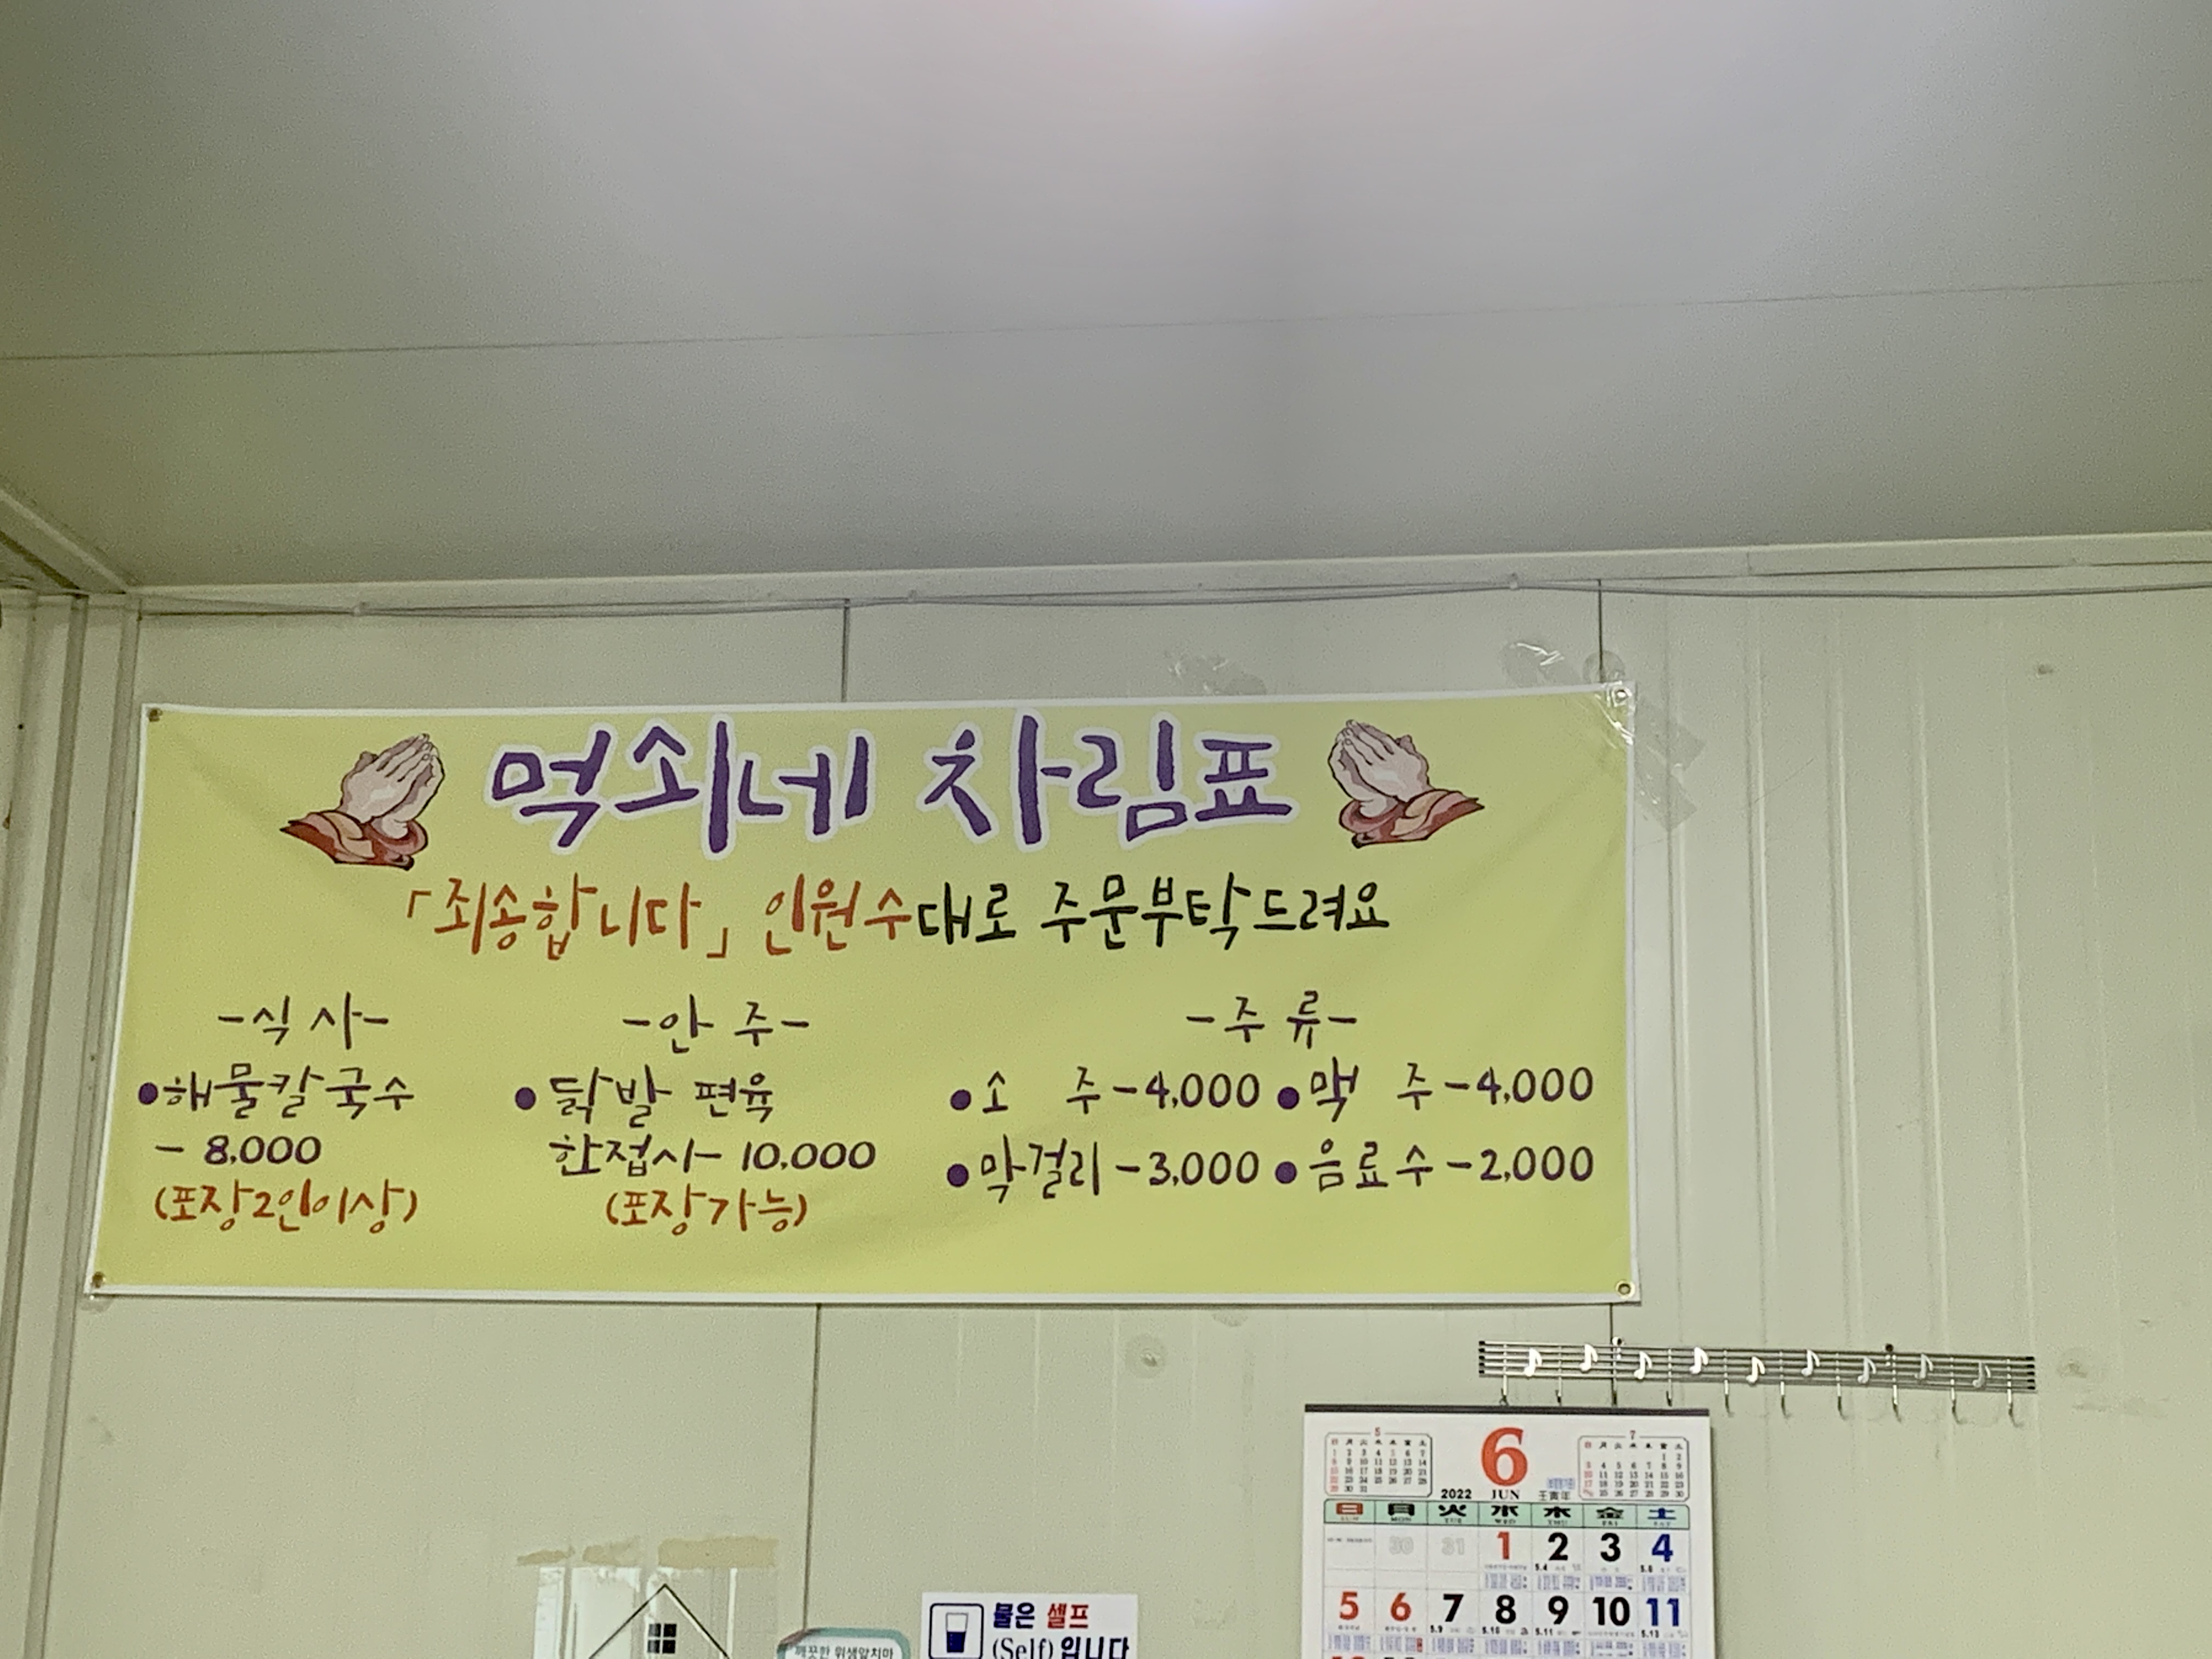 먹쇠네 차림표
「죄송합니다」 인원수대로 주문부탁드려요
-식 사-
•해물칼국수
- 8,000
(포장2인이상)
-안 주-
• 닭발 편육
한접시- 10,000
(포장가능)
-주 류-
•소 주-4,000 •맥 주-4,000
•막걸리-3,000 •음료수-2,000
5
6
7
2022 JUN 壬寅年
日 月 火 水 木 金 土
SUN MON TUE WED THU FRI SAT
30 31 1 2 3 4
5 6 7 8 9 10 11
물은 셀프
(Self)입니다
깨끗한 위생앞치마